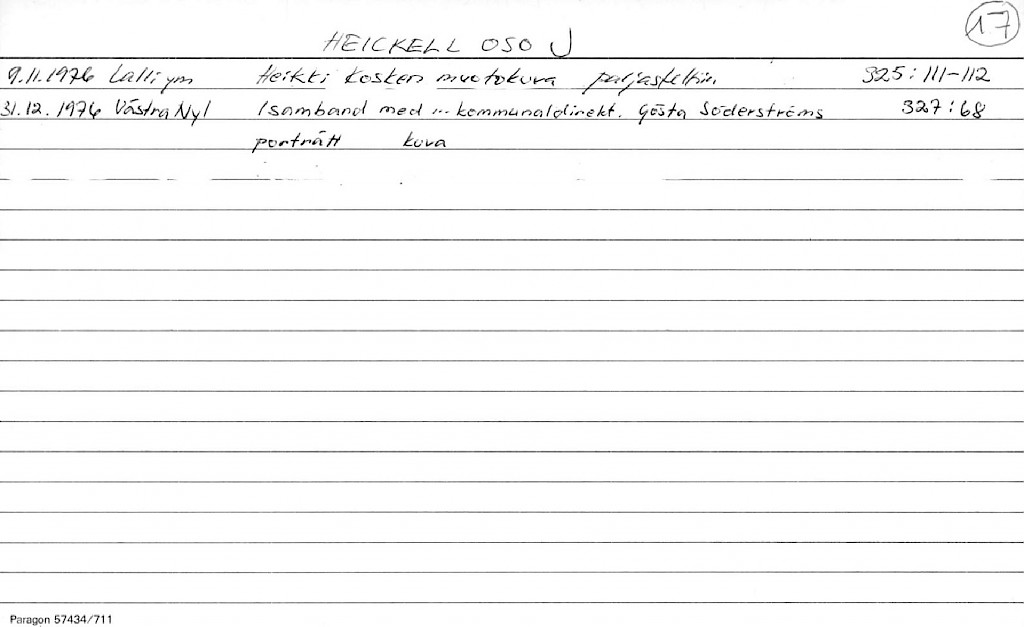 17
HEICKELL OSO J
9.11.1976 Lalli ym Heikki Kosken muotokuva paljastettiin 325:111-112
31.12.1976 Västra Nyl I samband med ... kommunaldirekt. Gösta Söderströms 327:68
porträtt kuva
Paragon 57434/711